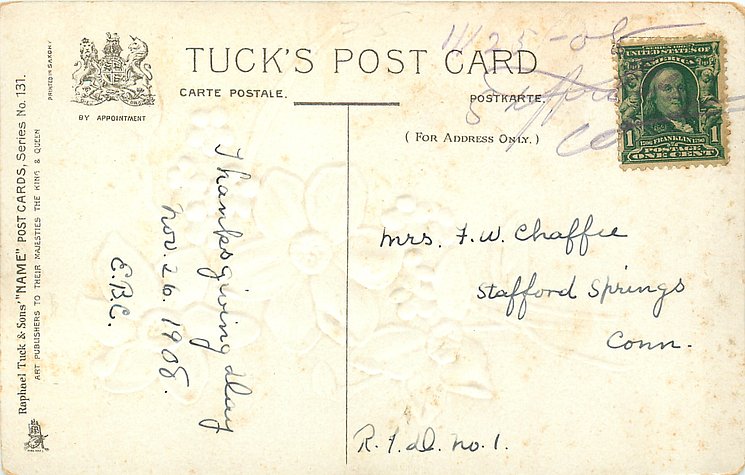 Raphael Tuck & Sons' "NAME" POST CARDS, Series No. 131.
ART PUBLISHERS TO THEIR MAJESTIES THE KING & QUEEN
PRINTED IN SAXONY
BY APPOINTMENT
TUCK'S POST CARD
CARTE POSTALE.
POSTKARTE.
(FOR ADDRESS ONLY.)
11/25-08
SERIES 1902
UNITED STATES OF
AMERICA
1 FRANKLIN 1
POSTAGE
ONE CENT
Thanksgiving day
Nov. 26. 1908.
E.B.C.
Mrs. F. W. Chaffee
Stafford Springs
Conn.
R.F.D. No. 1.